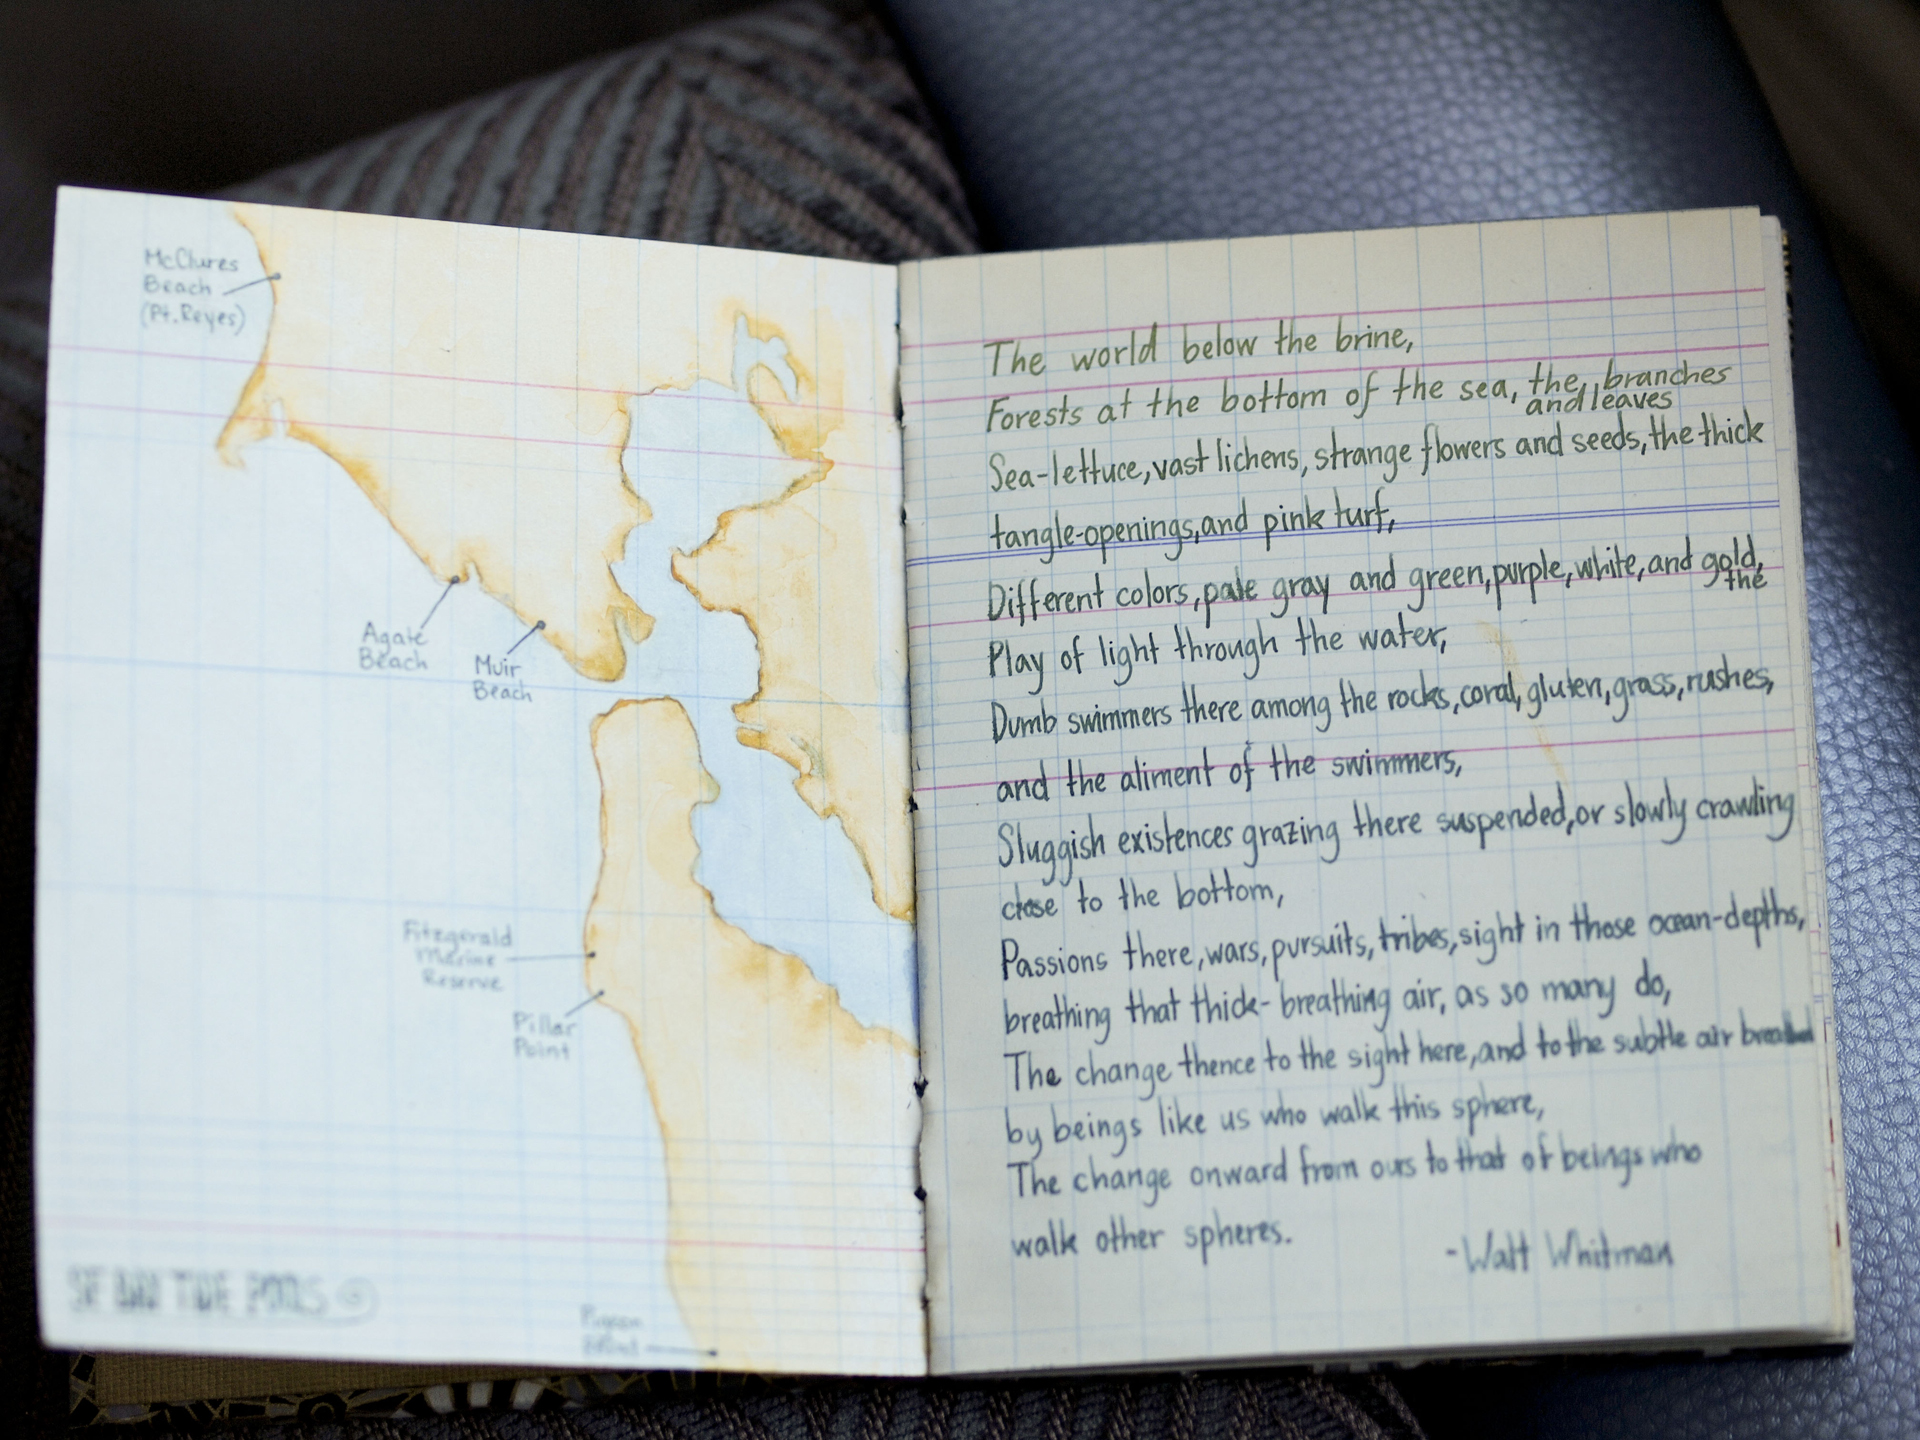 McClures
Beach
(Pt. Reyes)
Agate
Beach
Muir
Beach
Fitzgerald
Marine
Reserve
Pillar
Point
Pigeon
Point
SF BAY TIDE POOLS
The world below the brine,
Forests at the bottom of the sea, the branches
and leaves
Sea-lettuce, vast lichens, strange flowers and seeds, the thick
tangle-openings, and pink turf,
Different colors, pale gray and green, purple, white, and gold,
the
Play of light through the water,
Dumb swimmers there among the rocks, coral, gluten, grass, rushes,
and the aliment of the swimmers,
Sluggish existences grazing there suspended, or slowly crawling
close to the bottom,
Passions there, wars, pursuits, tribes, sight in those ocean-depths,
breathing that thick-breathing air, as so many do,
The change thence to the sight here, and to the subtle air breathed
by beings like us who walk this sphere,
The change onward from ours to that of beings who
walk other spheres.
-Walt Whitman